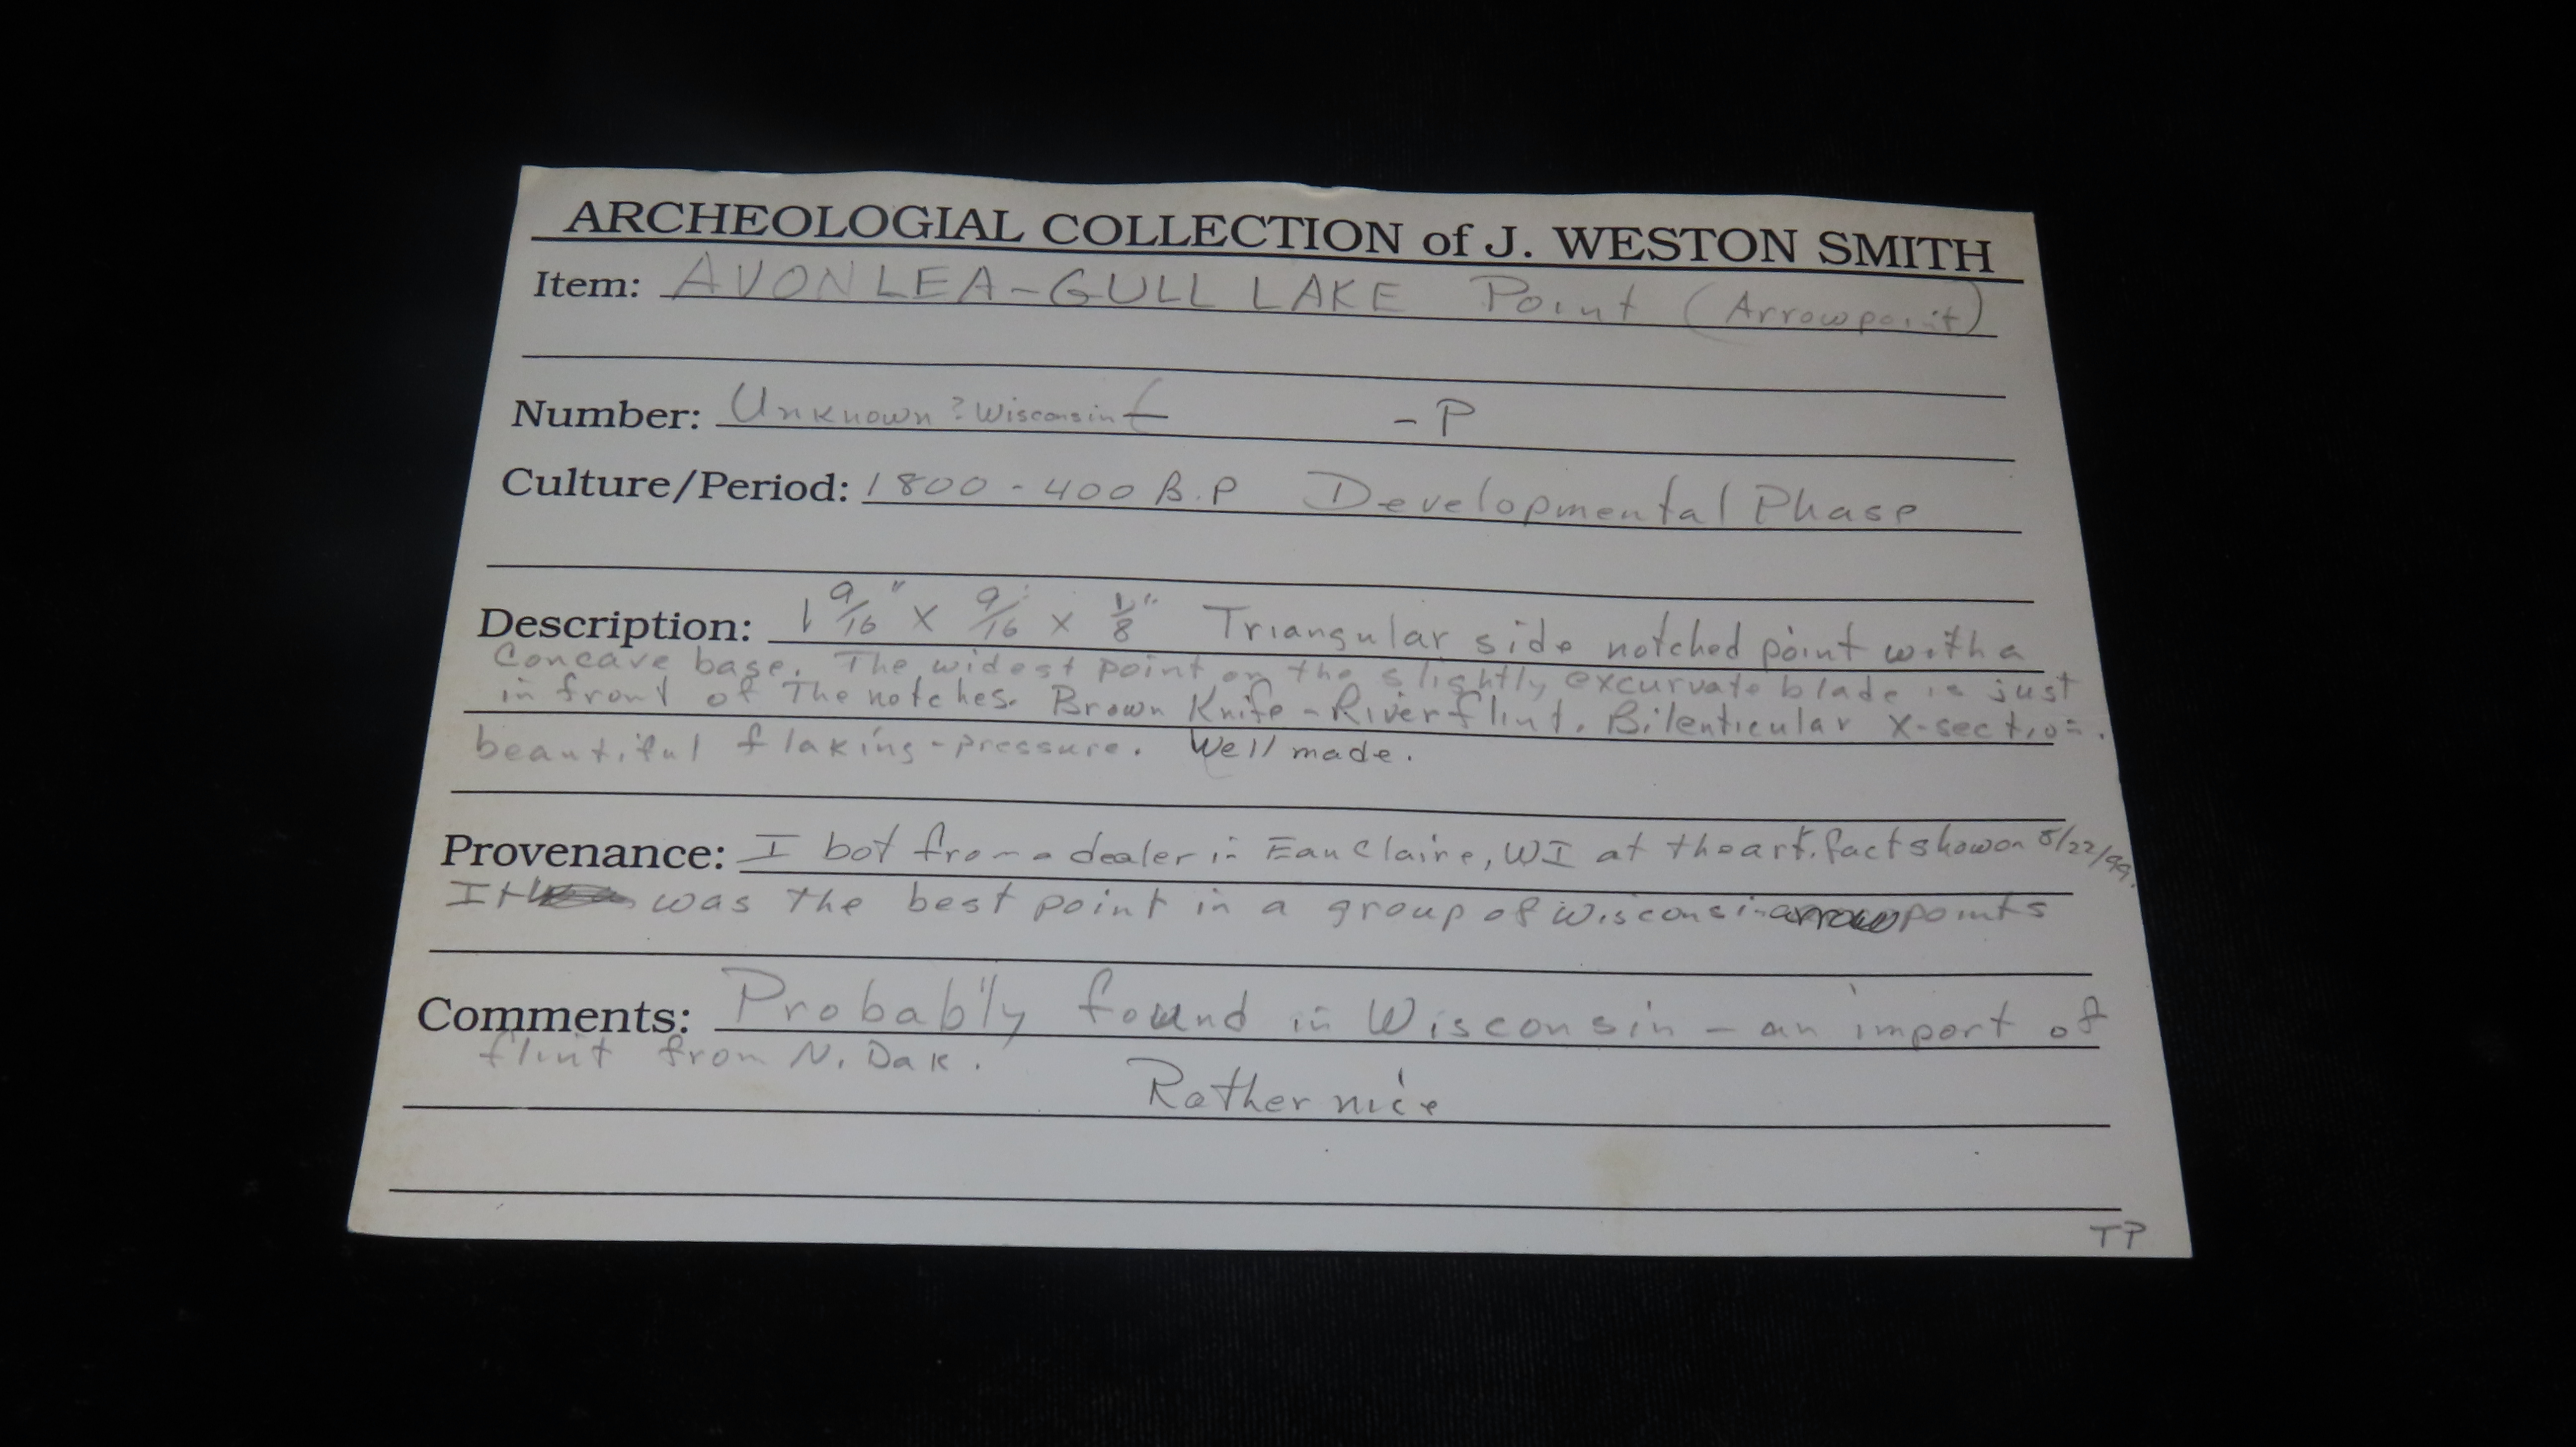 ARCHEOLOGIAL COLLECTION of J. WESTON SMITH
Item: AVONLEA-GULL LAKE Point (Arrowpoint)
Number: Unknown? Wisconsin - P
Culture/Period: 1800 - 400 B.P Developmental Phase
Description: 1 9/16" x 9/16 x 1/8" Triangular side notched point with a
Concave base. The widest point on the slightly excurvate blade is just
in front of The notches. Brown Knife-River flint. Bilenticular X-section.
beautiful flaking-pressure. Well made.
Provenance: I bot from a dealer in Eau Claire, WI at the artifact show on 8/22/99.
It was the best point in a group of Wisconsin arrowpoints
Comments: Probably found in Wisconsin - an import of
flint from N. Dak.
Rather nice
TP